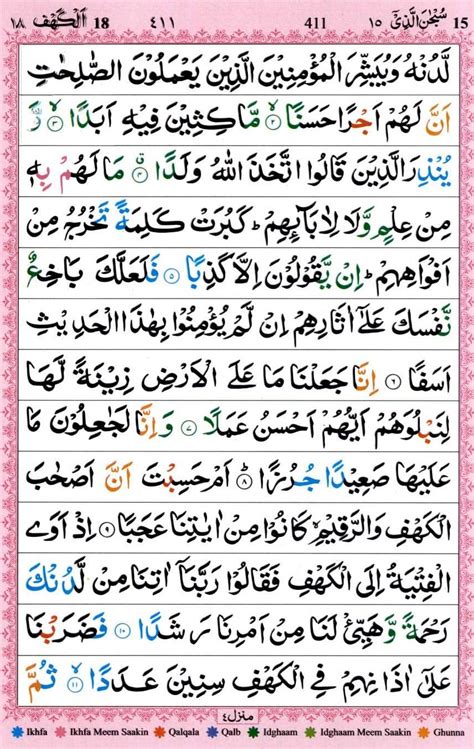 ١٨ اَلْكَهْف 18 ٤١١ 411 سُبْحٰنَ الَّذِيْٓ ١٥ 15
لَّدُنْهُ وَيُبَشِّرَ الْمُؤْمِنِيْنَ الَّذِيْنَ يَعْمَلُوْنَ الصّٰلِحٰتِ
اَنَّ لَهُمْ اَجْرًا حَسَنًا ۙ‏﴿۲﴾ مَّاكِثِيْنَ فِيْهِ اَبَدًا ۙ‏﴿۳﴾ وَّ
يُنْذِرَ الَّذِيْنَ قَالُوا اتَّخَذَ اللّٰهُ وَلَدًا ۗ‏﴿۴﴾ مَا لَهُمْ بِهٖ
مِنْ عِلْمٍ وَّلَا لِاٰبَآئِهِمْ ؕ كَبُرَتْ كَلِمَةً تَخْرُجُ مِنْ
اَفْوَاهِهِمْ ؕ اِنْ يَّقُوْلُوْنَ اِلَّا كَذِبًا ﴿۵﴾ فَلَعَلَّكَ بَاخِعٌ
نَّفْسَكَ عَلٰٓى اٰثَارِهِمْ اِنْ لَّمْ يُؤْمِنُوْا بِهٰذَا الْحَدِيْثِ
اَسَفًا ﴿۶﴾ اِنَّا جَعَلْنَا مَا عَلَى الْاَرْضِ زِيْنَةً لَّهَا
لِنَبْلُوَهُمْ اَيُّهُمْ اَحْسَنُ عَمَلًا ﴿۷﴾ وَاِنَّا لَجٰعِلُوْنَ مَا
عَلَيْهَا صَعِيْدًا جُرُزًا ؕ‏﴿۸﴾ اَمْ حَسِبْتَ اَنَّ اَصْحٰبَ
الْكَهْفِ وَالرَّقِيْمِ ۙ كَانُوْا مِنْ اٰيٰتِنَا عَجَبًا ﴿۹﴾ اِذْ اَوَى
الْفِتْيَةُ اِلَى الْكَهْفِ فَقَالُوْا رَبَّنَآ اٰتِنَا مِنْ لَّدُنْكَ
رَحْمَةً وَّهَيِّئْ لَنَا مِنْ اَمْرِنَا رَشَدًا ﴿۱۰﴾ فَضَرَبْنَا
عَلٰٓى اٰذَانِهِمْ فِي الْكَهْفِ سِنِيْنَ عَدَدًا ۙ‏﴿۱۱﴾ ثُمَّ
منزل ٤
Ikhfa Ikhfa Meem Saakin Qalqala Qalb Idghaam Idghaam Meem Saakin Ghunna